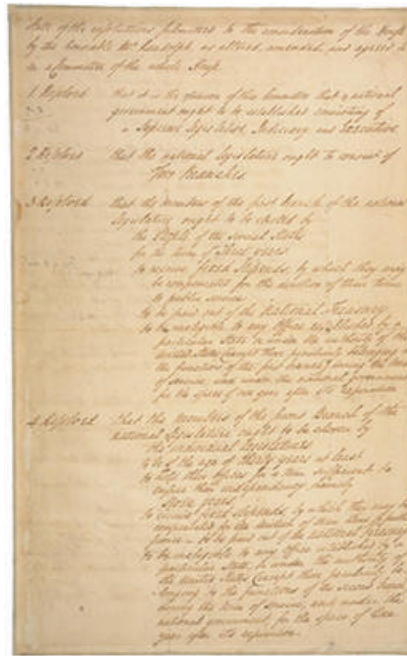 State of the resolutions submitted to the consideration of the House
by the honorable Mr. Randolph, as altered, amended, and agreed to
in a Committee of the whole House.
1 Resolved that it is the opinion of this Committee that a national
government ought to be established consisting of
a Supreme Legislative, Judiciary, and Executive.
2 Resolved that the national Legislature ought to consist of
Two Branches.
3 Resolved that the members of the first branch of the national
Legislature ought to be elected by
the People of the several States
for the term of Three years
to receive fixed stipends, by which they may
be compensated for the devotion of their time
to public service
to be paid out of the National Treasury
to be ineligible to any Office established by a
particular State or under the authority of the
United States (except those peculiarly belonging to
the functions of the first branch) during the term
of service, and under the national government
for the space of one year after its expiration.
4 Resolved that the members of the second Branch of the
national Legislature ought to be chosen by
the individual Legislatures
to be of the age of thirty years at least
to hold their offices for a term sufficient to
ensure their independency, namely
seven years
to receive fixed stipends, by which they may be
compensated for the devotion of their time to public
service – to be paid out of the National Treasury
to be ineligible to any Office established by a
particular State, or under the authority of
the United States (except those peculiarly be-
longing to the functions of the second branch)
during the term of service, and under the
national government, for the space of One
year after its expiration.